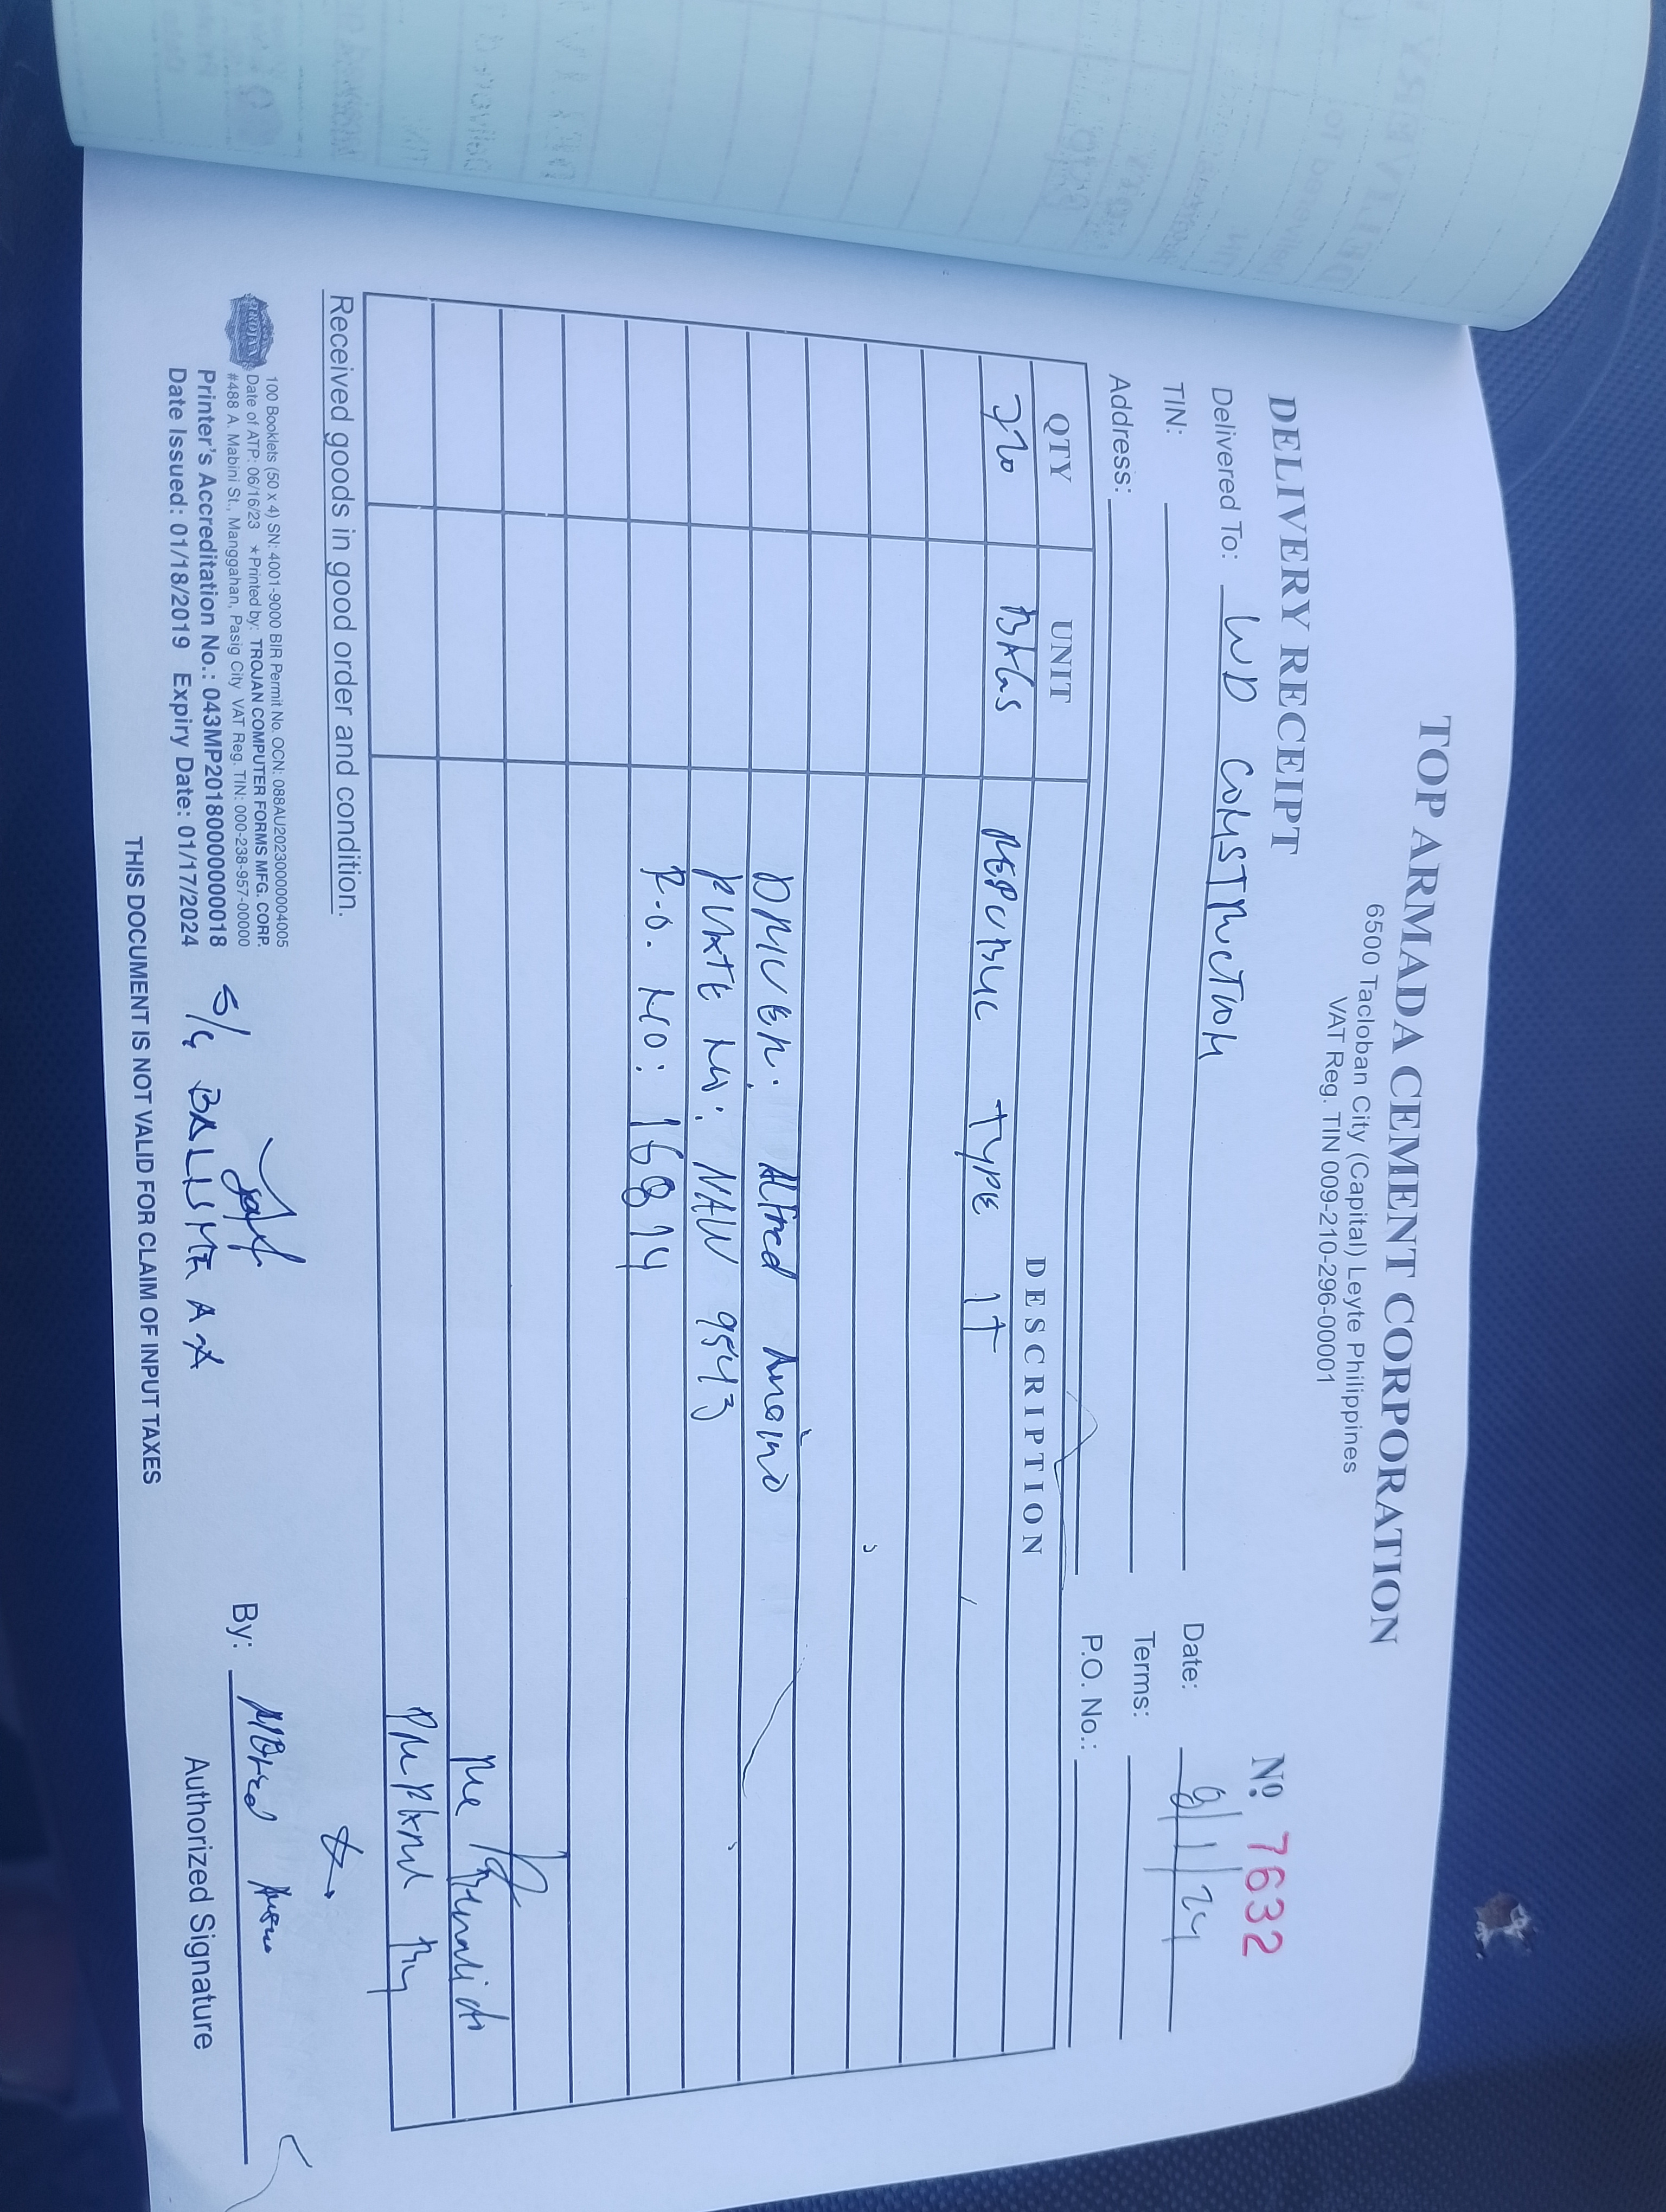 TOP ARMADA CEMENT CORPORATION
6500 Tacloban City (Capital) Leyte Philippines
VAT Reg. TIN 009-210-296-00001
DELIVERY RECEIPT
Nº 7632
Delivered To: WD CONSTRUCTION
Date: 8/1/24
TIN:
Terms:
Address:
P.O. No.:
QTY UNIT DESCRIPTION
720 BAGS REPUBLIC TYPE 1T
DRIVER: Alfred
PLATE NO: NAW 9543
P.O. NO: 16814
PREPARED BY
Received goods in good order and condition.
TROJAN
100 Booklets (50 x 4) SN: 4001-9000 BIR Permit No. OCN: 088AU20230000004005
Date of ATP: 06/16/23 ★Printed by: TROJAN COMPUTER FORMS MFG. CORP.
#488 A. Mabini St., Manggahan, Pasig City VAT Reg. TIN: 000-238-957-00000
Printer's Accreditation No.: 043MP20180000000018
Date Issued: 01/18/2019 Expiry Date: 01/17/2024
S/G
By: Alfred
Authorized Signature
THIS DOCUMENT IS NOT VALID FOR CLAIM OF INPUT TAXES